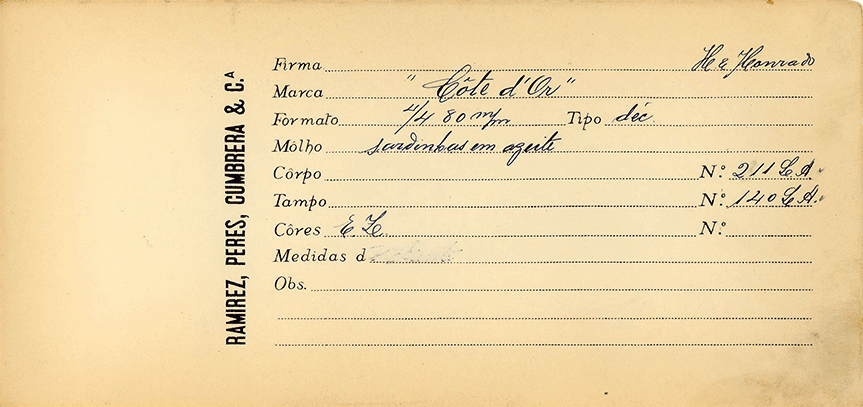 RAMIREZ, PERES, CUMBRERA & C.ᴬ
Firma H E Honrado
Marca "Côte d'Or"
Formato 4/4 80 m/m Tipo déc.
Môlho sardinhas em azeite
Côrpo N.º 211 L A.
Tampo N.º 140 L A.
Côres E L. N.º
Medidas d
Obs.